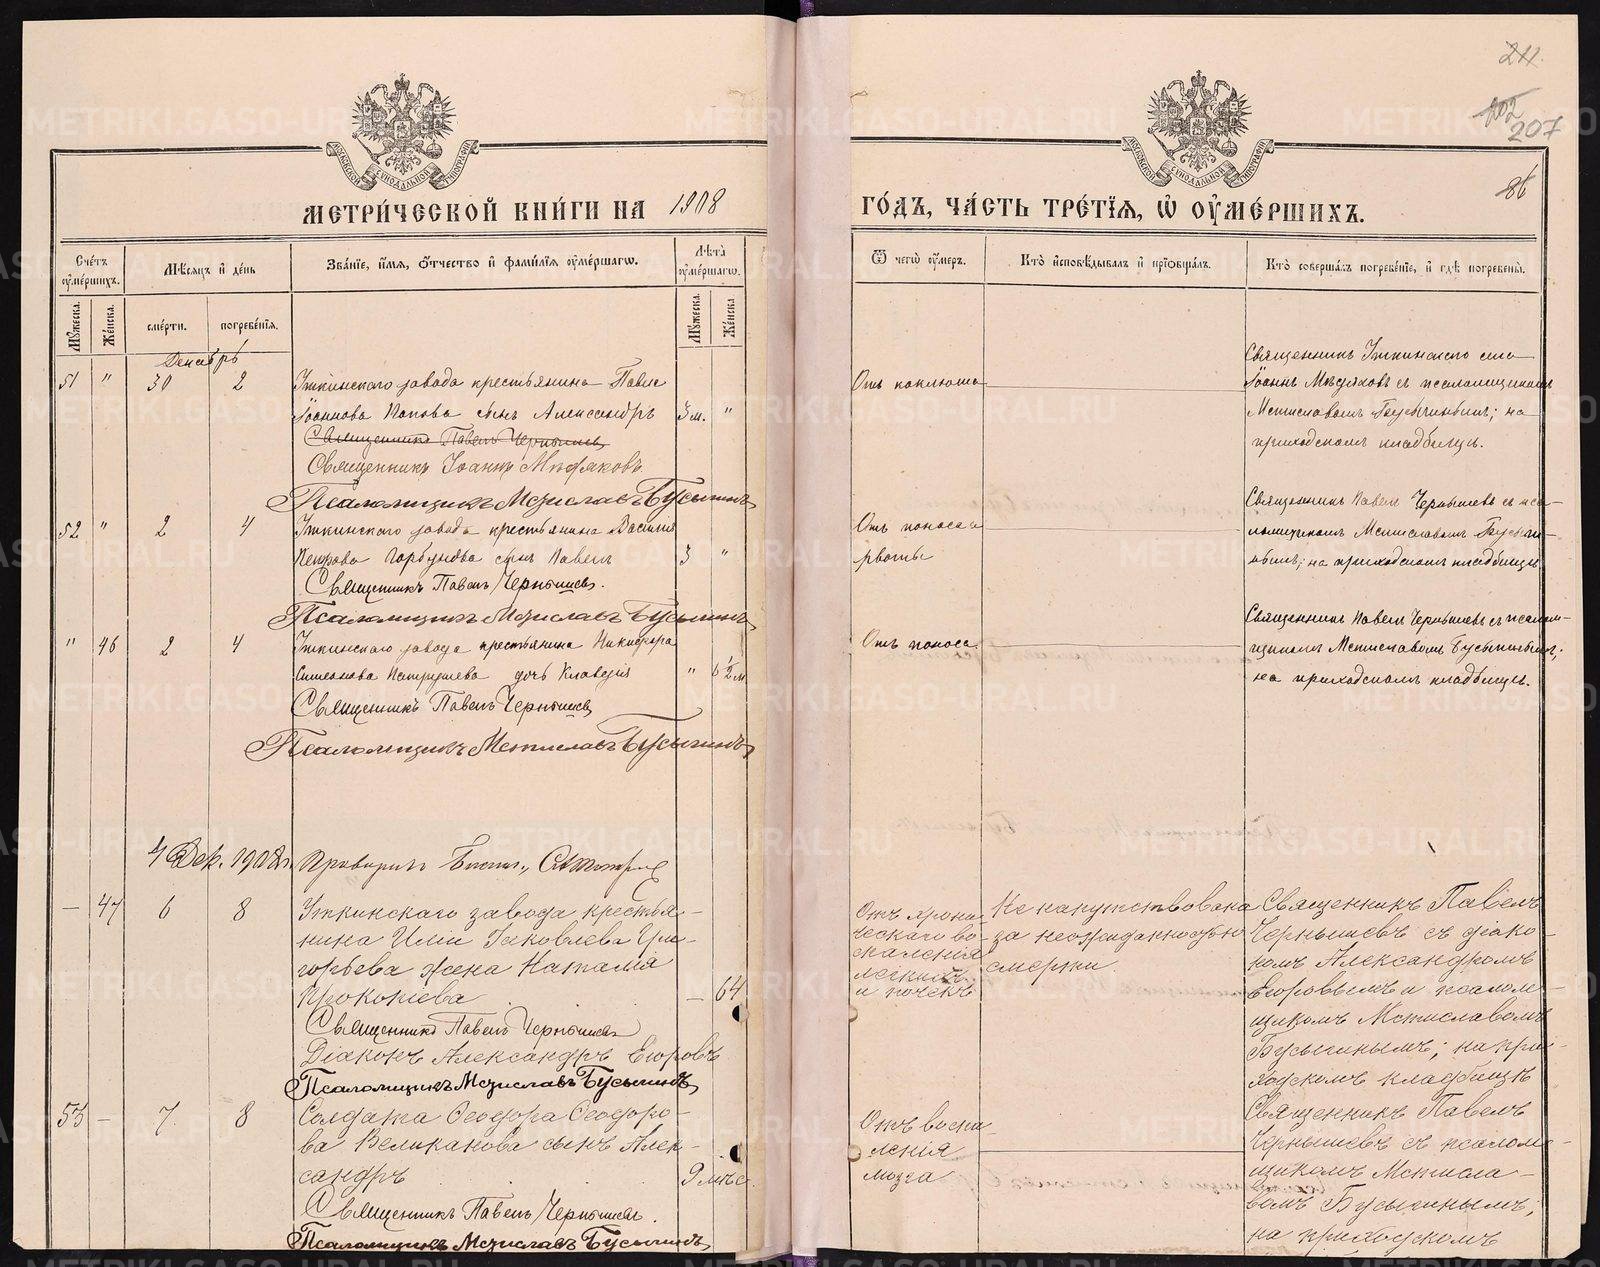 211.
202
207
86
МЕТРИ́ЧЕСКОЙ КНИ́ГИ НА 1908 ГО́ДЪ, ЧА́СТЬ ТРЕ́ТІѦ, Ѡ ОУМЕ́РШИХЪ.
МОСКОВСКОЙ СУНОДАЛЬНОЙ ТИПОГРАФІИ
МОСКОВСКОЙ СУНОДАЛЬНОЙ ТИПОГРАФІИ
Сче́тъ оумершихъ.
Мѣсяцъ и де́нь
Зва́ніе, и́мя, о́тчество и фами́лія оуме́ршагѡ.
Лѣта̀ оуме́ршагѡ.
Ѿ чегѡ̀ оу́меръ.
Кто̀ исповѣ́дывалъ и пріобща́лъ.
Кто̀ соверша́лъ погребе́ніе, и гдѣ̀ погребены̀.
Му́жеска.
Же́нска.
сме́рти.
погребе́нія.
Му́жеска.
Же́нска.
Декабрь
51 " 30 2 Уткинскаго завода крестьянина Павла
Іоаннова Попова сынъ Александръ 3 м. "
Священникъ Павелъ Чернышевъ
Священникъ Іоаннъ Мѣдяковъ
Псаломщикъ Мстиславъ Бусыгинъ
Отъ коклюша
Священникъ Уткинскаго села
Іоаннъ Мѣдяковъ съ псаломщикомъ
Мстиславомъ Бусыгинымъ; на
приходскомъ кладбищѣ.
52 " 2 4 Уткинскаго завода крестьянина Василія
Петрова Горбунова сынъ Павелъ 3 "
Священникъ Павелъ Чернышевъ.
Псаломщикъ Мстиславъ Бусыгинъ
Отъ поноса и
рвоты
Священникъ Павелъ Чернышевъ съ пса-
ломщикомъ Мстиславомъ Бусыги-
нымъ; на приходскомъ кладбищѣ
" 46 2 4 Уткинскаго завода крестьянина Никифора
Симеонова Патрушева дочь Клавдія " 6 1/2 м
Священникъ Павелъ Чернышевъ
Псаломщикъ Мстиславъ Бусыгинъ
Отъ поноса
Священникъ Павелъ Чернышевъ съ псалом-
щикомъ Мстиславомъ Бусыгинымъ;
на приходскомъ кладбищѣ.
4 Дек. 1908 г. Провѣрилъ
— 47 6 8 Уткинскаго завода крестья-
нина Иліи Іаковлева Гри-
горьева жена Наталія
Прокопіева — 64
Священникъ Павелъ Чернышевъ
Діаконъ Александръ Егоровъ
Псаломщикъ Мстиславъ Бусыгинъ
Отъ хрони-
ческаго во-
спаленія
легкихъ
и почекъ
Не напутствована
за неожиданностью
смерти.
Священникъ Павелъ
Чернышевъ съ діако-
номъ Александромъ
Егоровымъ и псалом-
щикомъ Мстиславомъ
Бусыгинымъ; на при-
ходскомъ кладбищѣ
53 — 7 8 Солдата Ѳеодора Ѳеодоро-
ва Великанова сынъ Алек-
сандръ 9 мѣс.
Священникъ Павелъ Чернышевъ.
Псаломщикъ Мстиславъ Бусыгинъ
Отъ воспа-
ленія
мозга
Священникъ Павелъ
Чернышевъ съ псалом-
щикомъ Мстисла-
вомъ Бусыгинымъ;
на приходскомъ
METRIKI.GASO-URAL.RU